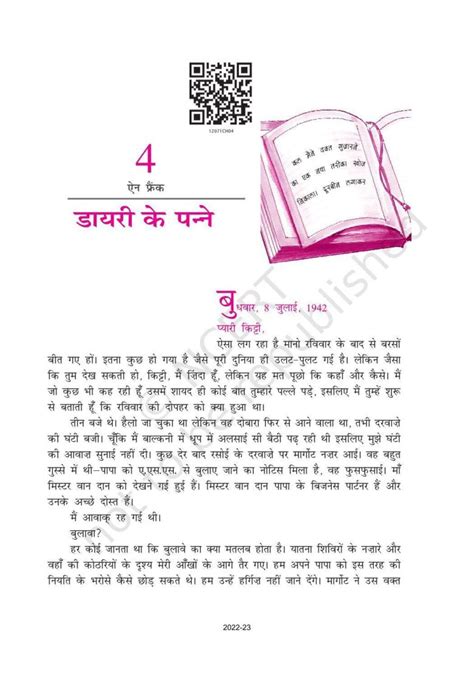 12071CH04
4
ऐन फ्रैंक
डायरी के पन्ने
कल मैंने वक्त गुजारने
का एक नया तरीका खोज
निकाला। दूरबीन लगाकर
बुधवार, 8 जुलाई, 1942
प्यारी किट्टी,
ऐसा लग रहा है मानो रविवार के बाद से बरसों
बीत गए हों। इतना कुछ हो गया है जैसे पूरी दुनिया ही उलट-पुलट गई है। लेकिन जैसा
कि तुम देख सकती हो, किट्टी, मैं ज़िंदा हूँ, लेकिन यह मत पूछो कि कहाँ और कैसे। मैं
जो कुछ भी कह रही हूँ उसमें शायद ही कोई बात तुम्हारे पल्ले पड़े, इसलिए मैं तुम्हें शुरू
से बताती हूँ कि रविवार की दोपहर को क्या हुआ था।
तीन बजे थे। हैलो जा चुका था लेकिन वह दोबारा फिर से आने वाला था, तभी दरवाज़े
की घंटी बजी। चूँकि मैं बाल्कनी में धूप में अलसाई सी बैठी पढ़ रही थी इसलिए मुझे घंटी
की आवाज़ सुनाई नहीं दी। कुछ देर बाद रसोई के दरवाज़े पर मार्गोट नज़र आई। वह बहुत
गुस्से में थी–पापा को ए.एस.एस. से बुलाए जाने का नोटिस मिला है, वह फुसफुसाई। माँ
मिस्टर वान दान को देखने गई हुई हैं। मिस्टर वान दान पापा के बिजनेस पार्टनर हैं और
उनके अच्छे दोस्त हैं।
मैं आवाक् रह गई थी।
बुलावा?
हर कोई जानता था कि बुलावे का क्या मतलब होता है। यातना शिविरों के नज़ारे और
वहाँ की कोठरियों के दृश्य मेरी आँखों के आगे तैर गए। हम अपने पापा को इस तरह की
नियति के भरोसे कैसे छोड़ सकते थे। हम उन्हें हर्गिज़ नहीं जाने देंगे। मार्गोट ने उस वक्त
2022-23
© NCERT
not to be republished